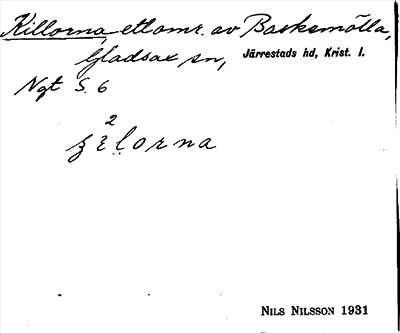 Killorna, ett omr. av Baskemölla,
Gladsax sn, Järrestads hd, Krist. l.
Ngt S. 6
2
NILS NILSSON 1931